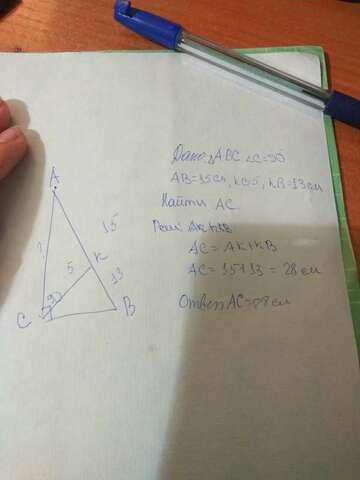 Дано: △ABC ∠C=90
AB=15см, KC=5, KB=13 см
Найти AC
Реш: AK+KB
AC = AK+KB
AC = 15+13 = 28 см
Ответ AC=28 см
A
15
?
5
K
13
90
C
B